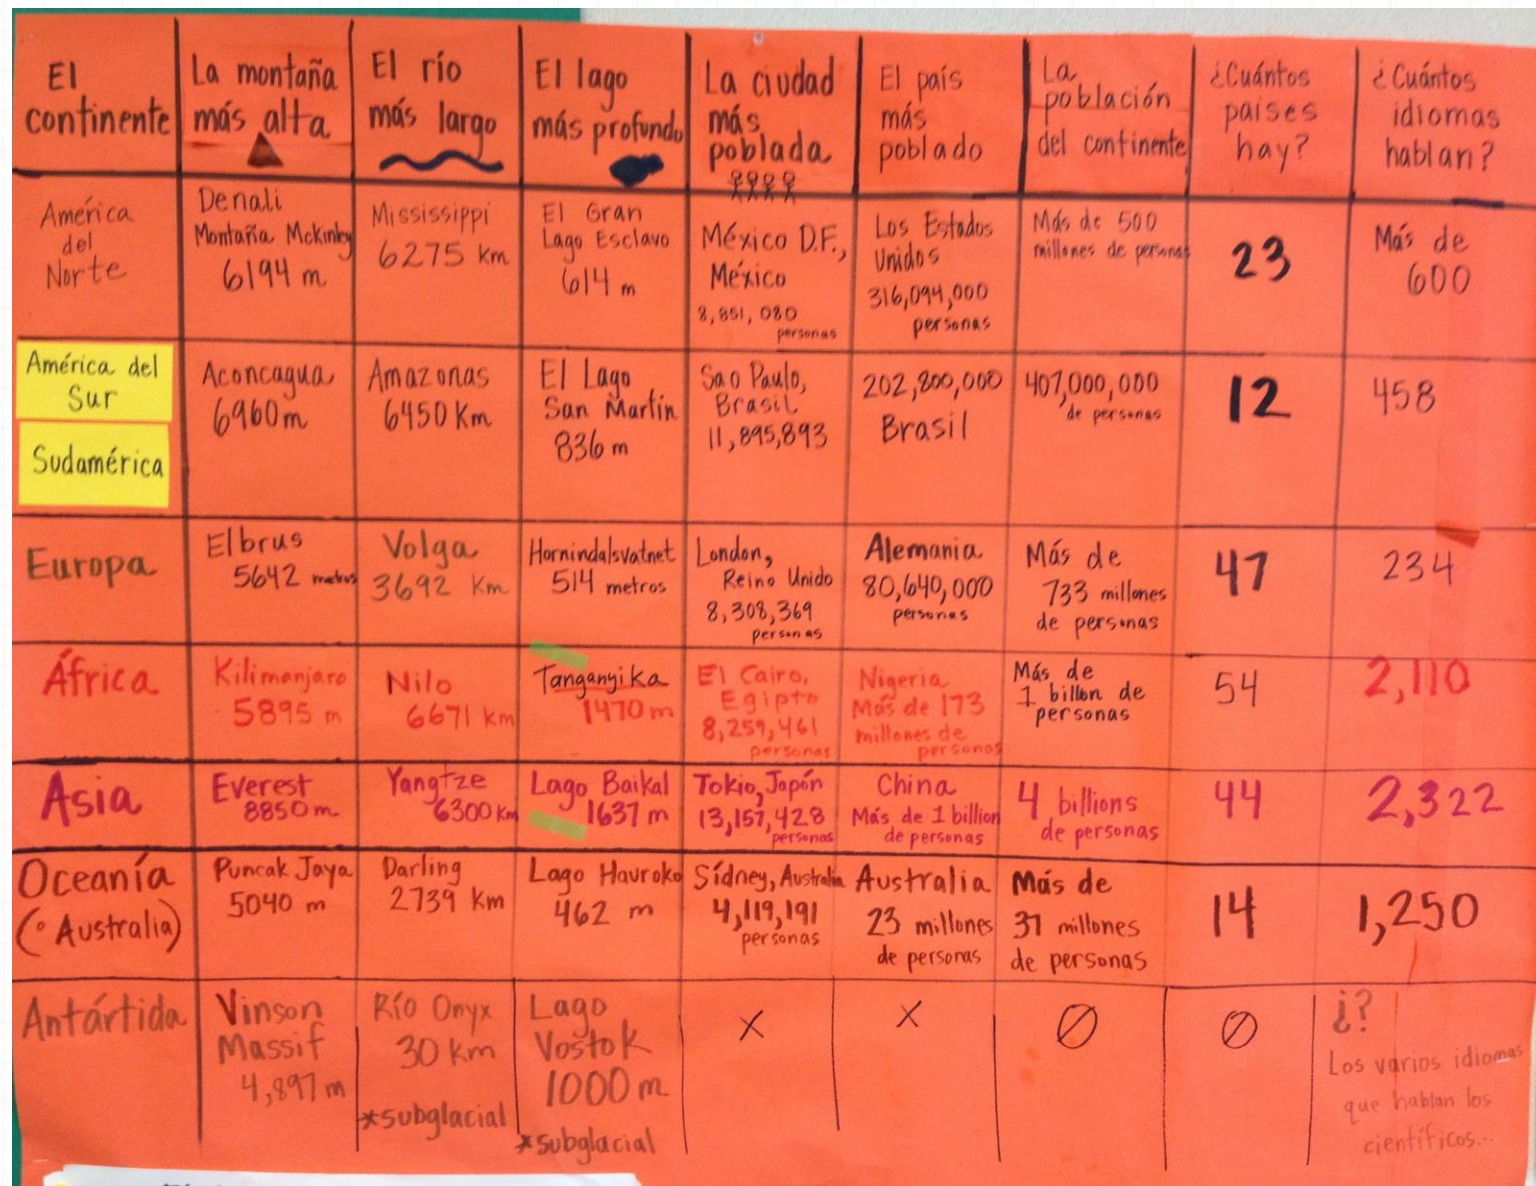 El
continente
La montaña
más alta
El río
más largo
El lago
más profundo
La ciudad
más
poblada
El país
más
poblado
La
población
del continente
¿Cuántos
paises
hay?
¿Cuántos
idiomas
hablan?
América
del
Norte
Denali
Montaña Mckinley
6194 m
Mississippi
6275 km
El Gran
Lago Esclavo
614 m
México D.F.,
México
8,851,080
personas
Los Estados
Unidos
316,094,000
personas
Más de 500
millones de personas
23
Más de
600
América del
Sur
Sudamérica
Aconcagua
6960m
Amazonas
6450 Km
El Lago
San Martín
836 m
Sao Paulo,
Brasil
11,895,893
202,800,000
Brasil
407,000,000
de personas
12
458
Europa
Elbrus
5642 metros
Volga
3692 Km
Hornindalsvatnet
514 metros
London,
Reino Unido
8,308,369
personas
Alemania
80,640,000
personas
Más de
733 millones
de personas
47
234
África
Kilimanjaro
5895 m
Nilo
6671 km
Tanganyika
1470 m
El Cairo,
Egipto
8,259,461
personas
Nigeria
Más de 173
millones de
personas
Más de
1 billon de
personas
54
2,110
Asia
Everest
8850m
Yangtze
6300 Km
Lago Baikal
1637 m
Tokio, Japón
13,157,428
personas
China
Más de 1 billion
de personas
4 billions
de personas
44
2,322
Oceanía
(o Australia)
Puncak Jaya
5040 m
Darling
2739 Km
Lago Hauroko
462 m
Sídney, Australia
4,119,191
personas
Australia
23 millones
de personas
Más de
37 millones
de personas
14
1,250
Antártida
Vinson
Massif
4,897 m
Río Onyx
30 Km
*subglacial
Lago
Vostok
1000 m
*subglacial
X
X
Ø
Ø
¿?
Los varios idiomas
que hablan los
científicos...